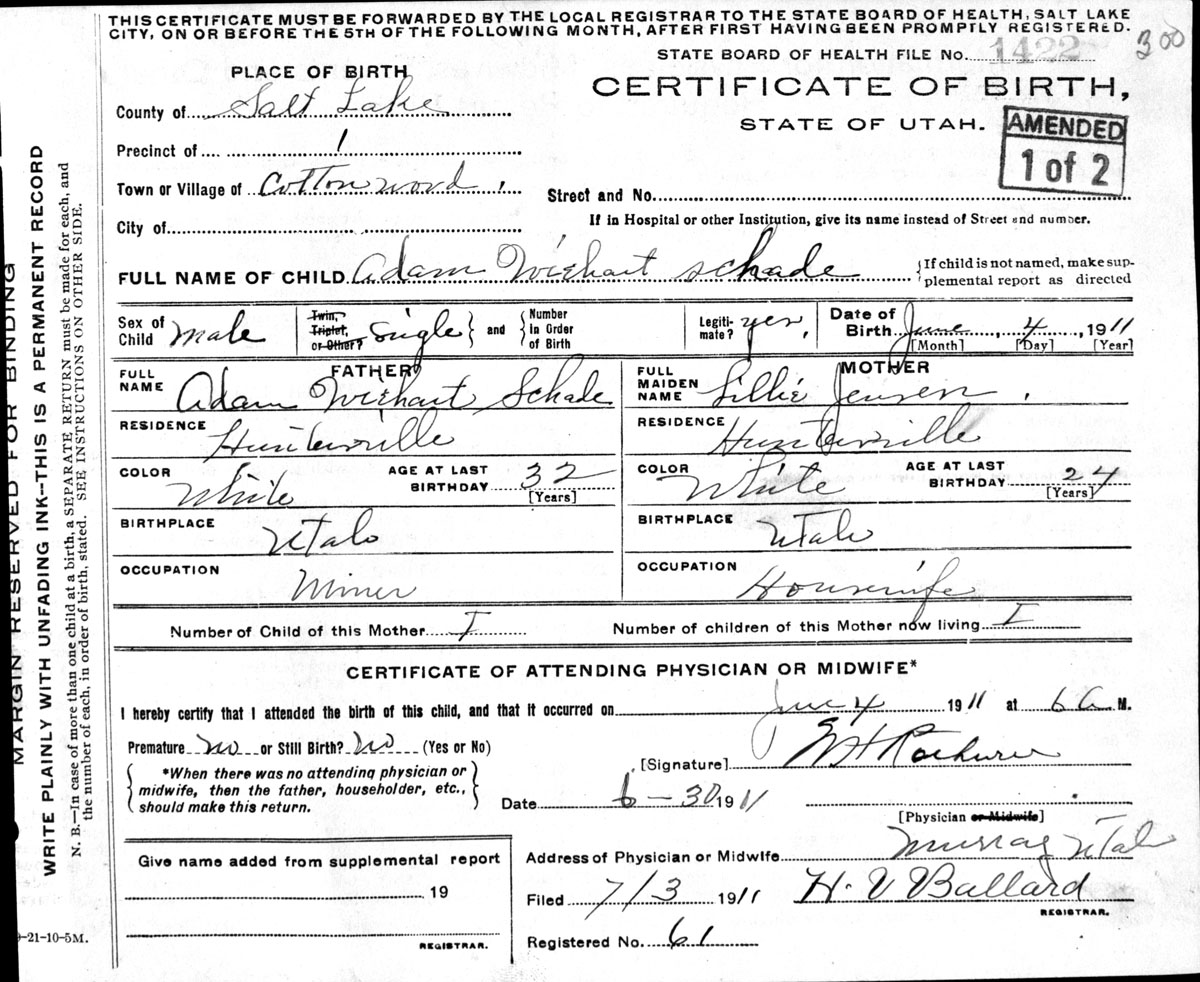 THIS CERTIFICATE MUST BE FORWARDED BY THE LOCAL REGISTRAR TO THE STATE BOARD OF HEALTH, SALT LAKE
CITY, ON OR BEFORE THE 5TH OF THE FOLLOWING MONTH, AFTER FIRST HAVING BEEN PROMPTLY REGISTERED.
300
STATE BOARD OF HEALTH FILE No. 1422
PLACE OF BIRTH
CERTIFICATE OF BIRTH,
STATE OF UTAH.
AMENDED
1 of 2
County of Salt Lake
Precinct of 1
Town or Village of Cottonwood
Street and No.
City of
If in Hospital or other Institution, give its name instead of Street and number.
FULL NAME OF CHILD Adam Wishart Schade {If child is not named, make sup-
plemental report as directed
Sex of Child Male Twin, Triplet, or Other? Single } and { Number in Order of Birth Legiti-mate? yes, Date of Birth June, 4, 1911
[Month] [Day] [Year]
FATHER
FULL NAME Adam Wishart Schade
RESIDENCE Hunterville
COLOR White AGE AT LAST BIRTHDAY 32
[Years]
BIRTHPLACE Utah
OCCUPATION Miner
MOTHER
FULL MAIDEN NAME Lillie Jensen
RESIDENCE Hunterville
COLOR White AGE AT LAST BIRTHDAY 24
[Years]
BIRTHPLACE Utah
OCCUPATION Housewife
Number of Child of this Mother I Number of children of this Mother now living I
CERTIFICATE OF ATTENDING PHYSICIAN OR MIDWIFE*
I hereby certify that I attended the birth of this child, and that it occurred on June 4 1911 at 6 A M.
Premature no or Still Birth? no (Yes or No)
[Signature] E H
*When there was no attending physician or
midwife, then the father, householder, etc.,
should make this return.
Date 6-30 1911
[Physician or Midwife]
Address of Physician or Midwife Murray Utah
Filed 7/3 1911 H. V Ballard
REGISTRAR.
Registered No. 61
Give name added from supplemental report
19
REGISTRAR.
9-21-10-5M.
MARGIN RESERVED FOR BINDING
WRITE PLAINLY WITH UNFADING INK--THIS IS A PERMANENT RECORD
N. B.—In case of more than one child at a birth, a SEPARATE RETURN must be made for each, and
the number of each, in order of birth, stated. SEE INSTRUCTIONS ON OTHER SIDE.